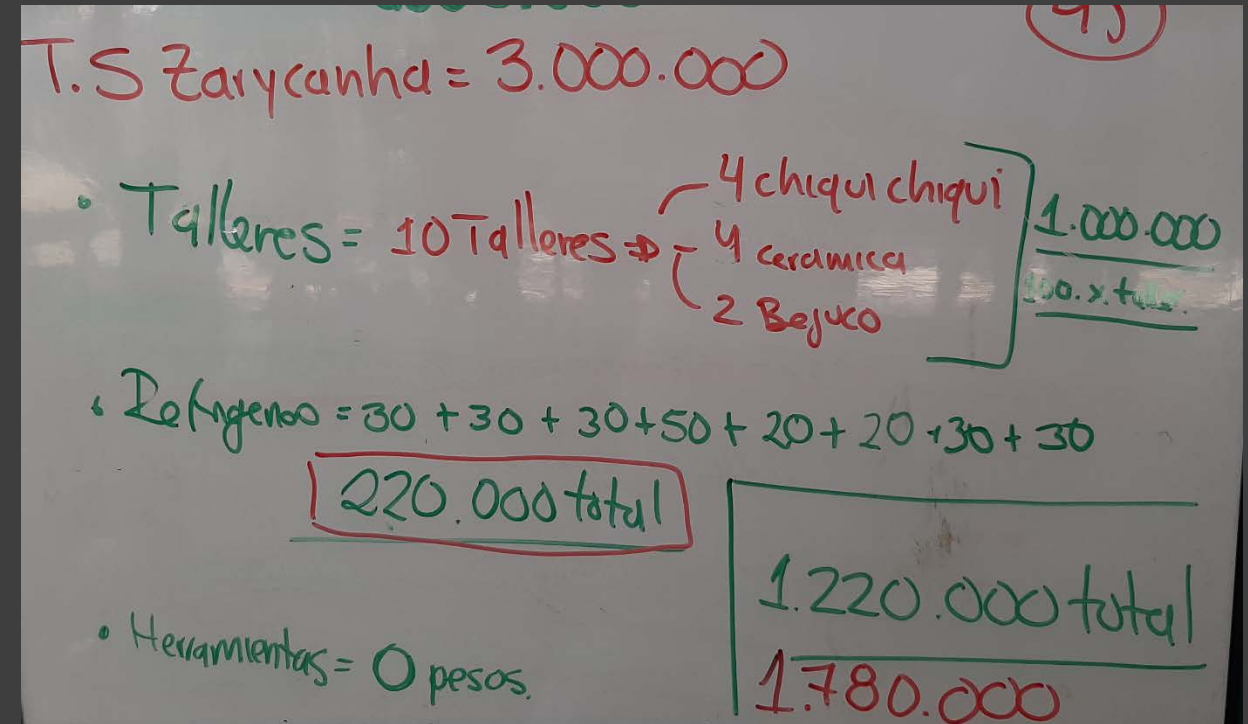 T.S Zarycanha = 3.000.000
• Talleres = 10 Talleres ⇒
4 chiquichiqui
4 ceramica
2 Bejuco
1.000.000
100.x.taller.
• Refrigerios = 30 + 30 + 30 + 50 + 20 + 20 + 30 + 30
220.000 total
• Herramientas = 0 pesos.
1.220.000 total
1.780.000